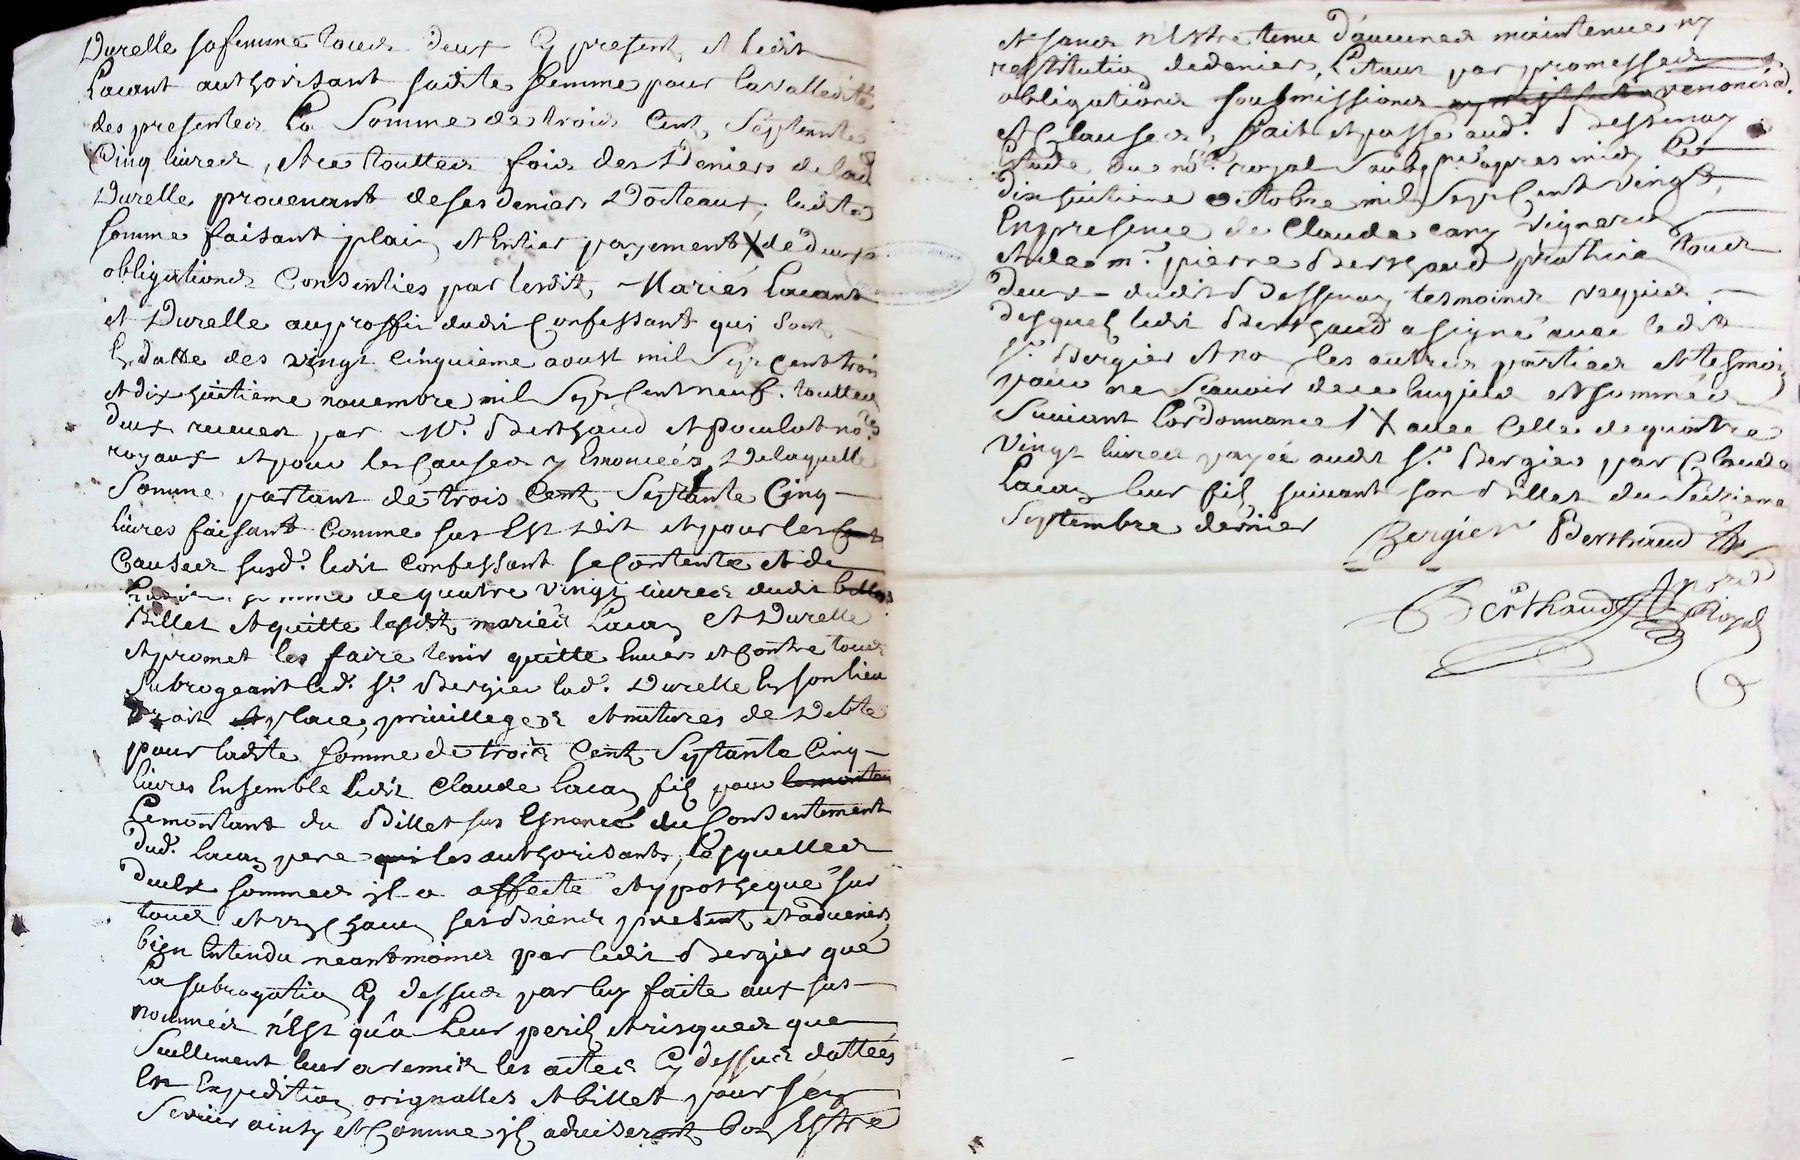 Durelle sa femme tous deux cy present, et ledit
Lacant authorisant sadite femme pour la vallidité
des presentes La Somme de trois Cent Septante
Cinq livres, et ce touttes fois des Deniers de lad.
Durelle provenant de ses deniers Docteaux, ladite
somme faisant plain et Entier payement X de deux
obligations Consenties par lesdits Mariés Lacant
et Durelle au proffit dudit Confessant qui sont
En datte des vingt cinquieme aoust mil Sept Cent trois
et dix huitieme novembre mil Sept Cent neuf. touttes
deux receues par Me. Berthaud et poculot nores
royaux et pour les Causes y Enoncées, De laquelle
Somme partant de trois Cent Septante Cinq
livres faisant Comme sus Est Dit et pour les
Causes susd. ledit Confessant se Contente et de
somme de quatre vingt livres dudit
Billet et quitte lesdits mariés Lacan et Durelle
et promet les faire tenir quitte Envers et Contre tous
Subrogeant led. Sr. Bergier lad. Durelle En son lieu
Droit et place, privilleges et natures de Debte
pour ladite somme de trois Cent Septante Cinq
livres Ensemble ledit Claude Lacan fils pour
Le montant du Billet sus Enoncé du Consentement
dud. Lacan pere les authorisants, lesquelles
deulx sommes il a affecté et ypotheque sur
tous et un chacun ses Biens present et advenirs
bien Entendu neantmoins par ledit Bergier que
La subrogation Cy dessus par luy faite aux sus
nommés n'Est qu'a Leur peril et risques que
Seullement leur a remis les actes Cy dessus dattées
En Expedition orignalles et billet pour s'en
Servir ainsy et Comme ils adviseront bon Estre
et sans n'Estre tenu d'aucunes maintenue ny
restitution de denier, Et aux par promesses
obligations soubmissions renoncia.
et Clauses, fait et passé aud. Bessenay
Etude du nore royal soubsné apres midy Le
dix huitieme octobre mil Sept Cent vingt,
En presence de Claude cany vigneron
et de me. pierre Berthaud praticien tous
deux dudit Bessenay tesmoins requis
desquels ledit Berthaud a signé avec ledit
Sr. Bergier et non les autres parties et tesmoin
pour ne Scavoir de ce Enquis et sommés
Suivant L'ordonnance / X avec Celle de quattre
vingt livres payée audit Sr. Bergier par Claude
Lacan leur fils suivant son Billet du Seisieme
Septembre dernier
Bergier Berthaud
Berthaud
Royal